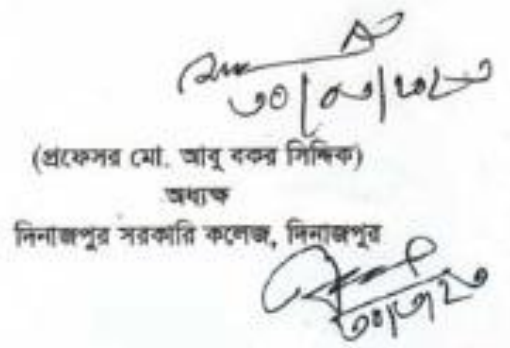 ৩০/০৩/২০২৩
(প্রফেসর মো. আবু বকর সিদ্দিক)
অধ্যক্ষ
দিনাজপুর সরকারি কলেজ, দিনাজপুর